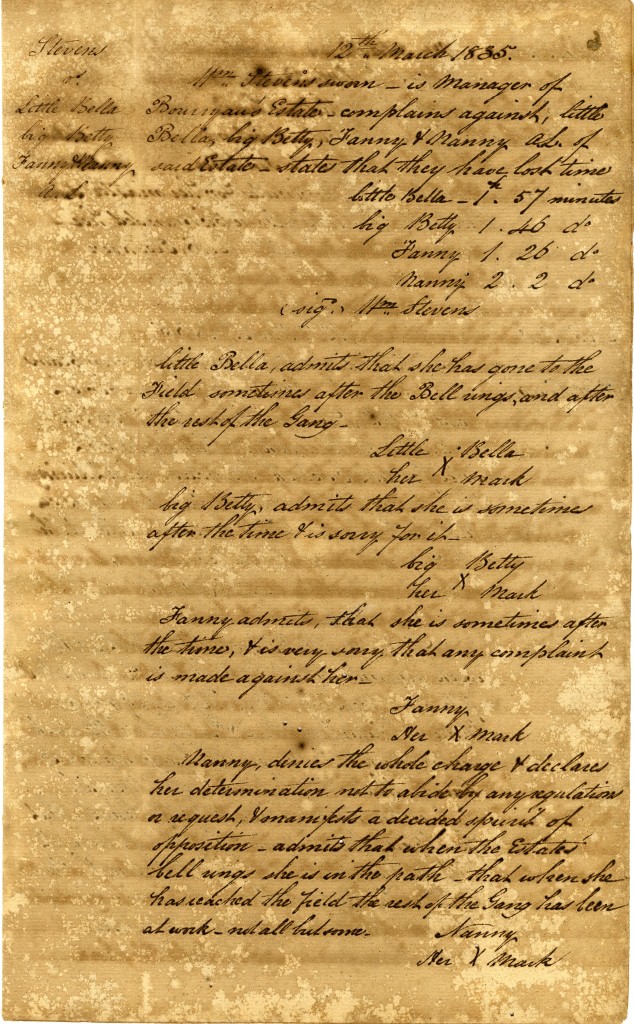 Stevens
vs
Little Bella
big Betty
Fanny & Nanny
A. L.
12th March 1835.
Wm Stevens sworn – is Manager of
Bouryau's Estate – complains against, little
Bella, big Betty, Fanny & Nanny A.L. of
said Estate – states that they have lost time
little Bella – 1h. 57 minutes
big Betty 1. 46 do
Fanny 1. 26 do
Nanny 2. 2 do
(sigd.) Wm Stevens
little Bella, admits that she has gone to the
Field sometimes after the Bell rings, and after
the rest of the Gang –
Little Bella
her X Mark
big Betty, admits that she is sometimes
after the time & is sorry for it –
big Betty
her X Mark
Fanny admits, that she is sometimes after
the time, & is very sorry that any complaint
is made against her –
Fanny
Her X Mark
Nanny, denies the whole charge & declares
her determination not to abide by any regulations
or request, & manifests a decided spirit of
opposition – admits that when the Estates'
bell rings she is in the path – that when she
has reached the field the rest of the Gang has been
at work – not all but some –
Nanny
Her X Mark